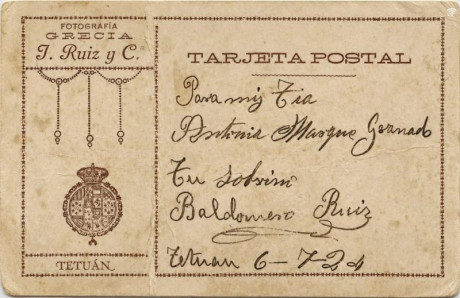 FOTOGRAFÍA
GRECIA
J. Ruiz y C.
TETUÁN
TARJETA POSTAL
Para mis Tia
Antonia Marque Granado
Tu sobrino
Baldomero Ruiz
Tetuan 6-7-24